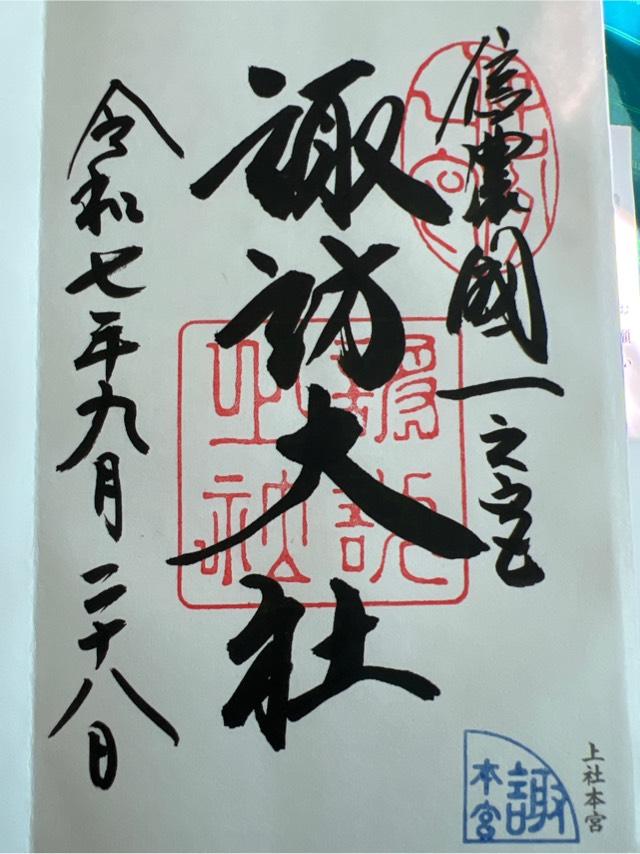 信濃國一之宮
諏訪大社
令和七年九月二十八日
上社本宮
諏
本宮